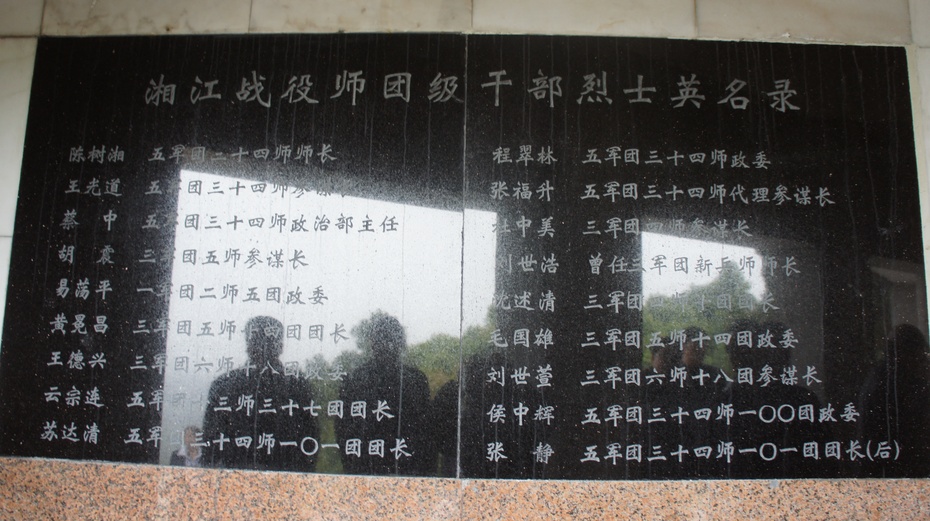 湘江战役师团级干部烈士英名录
陈树湘 五军团三十四师师长
王光道 五军团三十四师参谋长
蔡中 五军团三十四师政治部主任
胡震 三军团五师参谋长
易荡平 一军团二师五团政委
黄冕昌 三军团五师十四团团长
王德兴 三军团六师十八团政委
云宗连 五军团十三师三十七团团长
苏达清 五军团三十四师一〇一团团长
程翠林 五军团三十四师政委
张福升 五军团三十四师代理参谋长
杜中美 三军团四师参谋长
刘世浩 曾任三军团新兵师师长
沈述清 三军团四师十团团长
毛国雄 三军团五师十四团政委
刘世萱 三军团六师十八团参谋长
侯中辉 五军团三十四师一〇〇团政委
张静 五军团三十四师一〇一团团长(后)